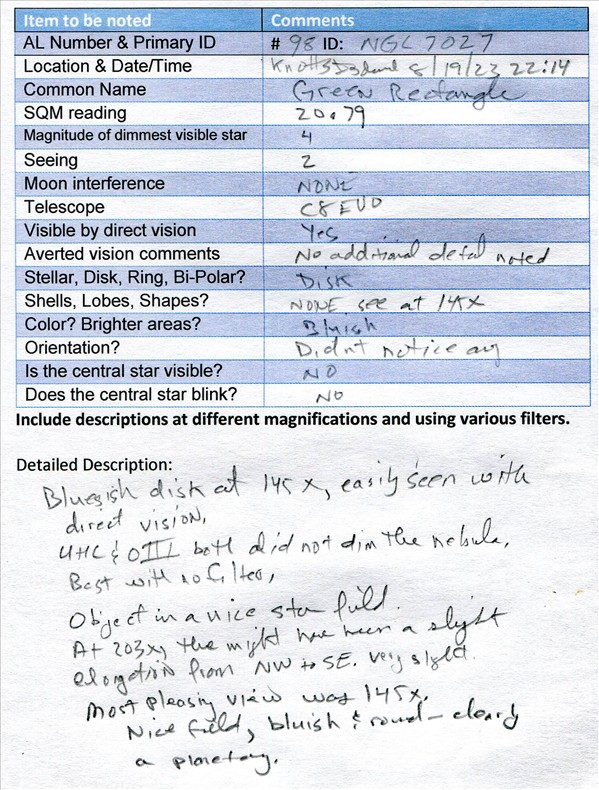 Item to be noted Comments
AL Number & Primary ID # 98 ID: NGC 7027
Location & Date/Time Knotts Island 8/19/23 22:14
Common Name Green Rectangle
SQM reading 20.79
Magnitude of dimmest visible star 4
Seeing 2
Moon interference NONE
Telescope C8 EVO
Visible by direct vision Yes
Averted vision comments No additional detal noted
Stellar, Disk, Ring, Bi-Polar? Disk
Shells, Lobes, Shapes? NONE see at 145X
Color? Brighter areas? Bluish
Orientation? Didnt notice any
Is the central star visible? NO
Does the central star blink? NO
Include descriptions at different magnifications and using various filters.
Detailed Description:
Bluegish disk at 145 x, easily seen with
direct vision,
UHC & OIII both did not dim the nebula,
Best with no filter,
Object in a nice star field.
At 203x, the might have been a slight
elongation from NW to SE. very slight.
Most pleasing view was 145x.
Nice field, bluish & round - clearly
a planetary.